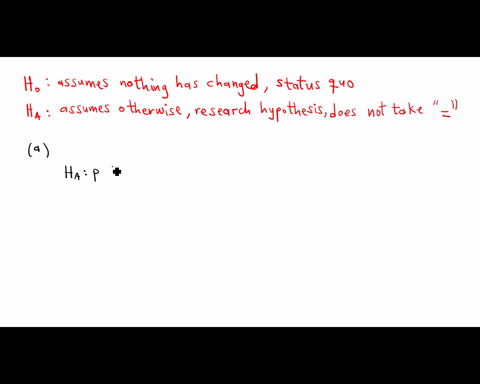 H₀: assumes nothing has changed, status quo
Hₐ: assumes otherwise, research hypothesis, does not take "="
(a)
Hₐ: p